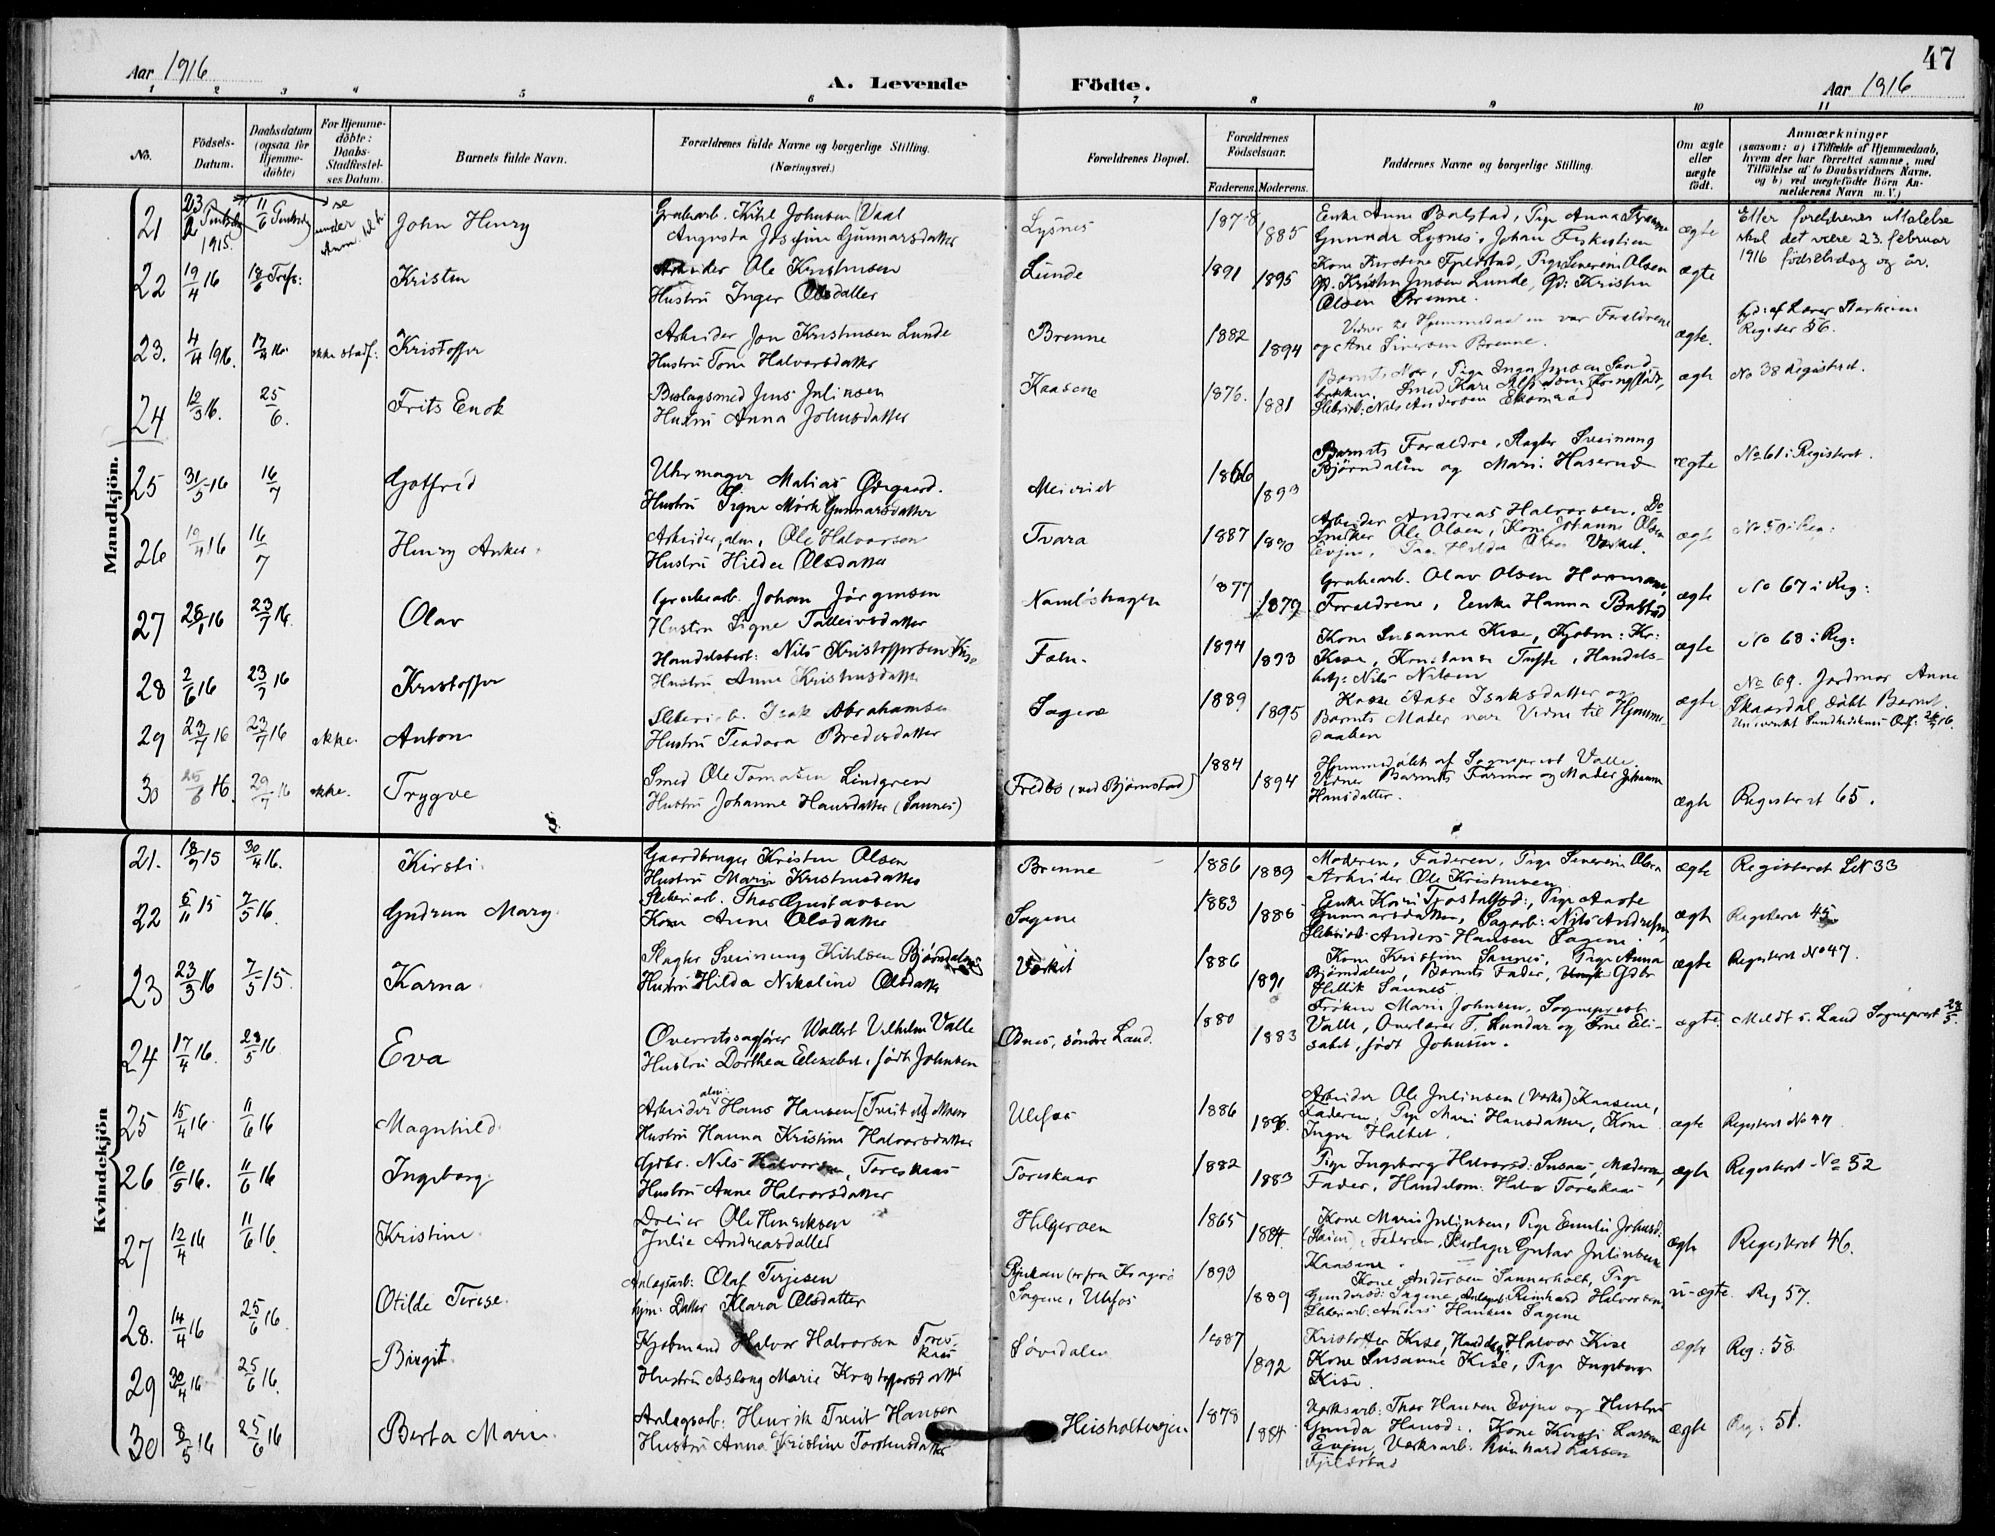 47
Aar 1916
A. Levende Födte.
Aar 1916
1 2 3 4 5 6 7 8 9 10 11
No.
Födsels-
Datum.
Daabsdatum
(ogsaa for
Hjemme-
döbte)
For Hjemme-
döbte:
Daabs-
Stadfæstel-
ses Datum.
Barnets fulde Navn.
Forældrenes fulde Navne og borgerlige Stilling.
(Næringsvei.)
Forældrenes Bopæl.
Forældrenes
Födselsaar.
Faderens. Moderens.
Faddernes Navne og borgerlige Stilling.
Om ægte
eller
uægte
født.
Anmærkninger
(saasom: a) i Tilfælde af Hjemmedaab,
hvem der har forrettet samme, med
Tilföielse af to Daabsvidners Navne,
og b) ved uægtefödte Börn An-
melderens Navn m. V.)
Mandkjön.
21 23 1915 11/6 se under Anm. John Henry
Grubearb. Kitil Johnsen Vaal
Augusta Josefine Gunnarsdatter
Lysnes 1878 1885
Enke Anne Bolstad, Pige Anna
Gunnar Lysnes, Johan
ægte
Efter foreldrenes uttalelse
skal det være 23. februar
1916 fødselsdag og år.
22 19/4 16 18/6 Kristen
Arbeider Ole Kristensen
Hustru Inger Olsdatter
Lunde 1891 1895
Kone Kirstine Fjeldstad, Pige Severine Olsen
Gb. Kristen Jensen Lunde, Gb: Kristen
Olsen Brenne.
ægte
23. 4/4 1916. ikke stadf: Kristoffer
Arbeider Jon Kristensen Lunde
Hustru Tone Halvorsdatter
Brenne 1882 1894
Vidner til Hjemmedaaben var Forældrene
og Ane Siversen Brenne.
ægte.
Register 56.
24 12/3 16. 25/6. Frits Enok
Beslagsmed Jens Julinsen
Hustru Anna Johnsdatter
Kaasene 1876. 1881
Barnets Mor, Pige Inga Jensen Sand-
bakken, Smed Kare
Sliberiarb: Nils Andersen
ægte No 38 Registeret.
25 31/5 16 16/7 Gotfred
Uhrmager Matias Ødegaard.
Hustru Signe Mørk Gunnarsdatter
Meieriet 1866 1893
Barnets Forældre, Slagter Sveinung
Bjørndalen og Mari Haserud
ægte No 61 i Registeret.
26 16/7 Henry Anker.
Arbeider, alm. Ole Halvorsen
Hustru Hilda Olsdatter
Tvara 1887 1890
Arbeider Andreas Halvorsen. Do
Snedker Ole Olsen, Kone Johanne Olsen
Evjen, Pige Hilda Olsen Værket.
ægte No 50 i Reg:
27 23/7 16. Olav
Grubearb. Johan Jørgensen
Hustru Signe Talleivsdatter
Namløshagen 1877 1879
Grubearb. Olav Olsen
Forældrene, Enke Hanna Bakstad
ægte No 67 i Reg:
28 2/6 16 23/7 16 Kristoffer
Handelsbest: Nils Kristoffersen Kise
Hustru Anne Kristensdatter
Fæn. 1894 1893
Kone Susanne Kise, Kjøbm: Kr:
Kise, Konstanse Tufte, Handels-
betj: Nils Nilsen
ægte No 68 i Reg:
29 23/7 16 23/7 16 ikke. Anton
Sliberiarb. Isak Abrahamsen
Hustru Teodora Bredesdatter
Sagene 1889 1895
Kone Aase Isaksdatter og
Barnets Moder var Vidne til Hjemme-
daaben
ægte
No 69. Jordmor Anne
Skaardal døbt Barnet.
30 25/6 16. 29/7 16 ikke. Trygve
Smed Ole Tomasen Lindgren
Hustru Johanne Hansdatter (Sannes)
Fredbo (ved Bjørnstad) 1884 1894
Hjemmedøbt af Sogneprest Valle
Vidner Barnets Farmor og Moder Johanne
Hansdatter.
ægte Registeret 65.
Kvindekjön
21. 18/9 15 30/4 16. Kirsti.
Gaardbruger Kristen Olsen
Hustru Maria Kristensdatter
Brenne 1886 1889
Moderen, Faderen, Pige Severine Olsen
Arbeider Ole Kristensen
ægte Registeret 33
22 6/11 15 7/5 16. Gudrun Mary.
Sliberiarb. Thor Gustavsen
Kone Anne Olsdatter
Sagene 1883 1886
Enke Kari Torstalsd:, Pige Aaste
Gunnarsdatter, Sagarb: Nils Andersen,
Sliberiarb: Anders Hansen Sagene.
ægte Registeret 45
23 23/3 16 7/5 15. Karna.
Slagter Sveinung Kitilsen Bjørndalen
Hustru Hilda Nikoline Olsdatter
Værket 1886 1891
Kone Kristine Sannes, Pige Anna
Bjørndalen, Barnets Fader, Gdbr
Hellik Sannes
ægte Registeret No 47.
24 17/4 16. 28/5 16 Eva
Overretssagfører Wollert Vilhelm Valle
Hustru Dorthea Elisabet, født Johnsen
Odnes, søndre Land. 1880 1883
Frøken Marie Johnsen, Sogneprest
Valle, Overlærer T. Lundar og Frue Eli-
sabet, født Johnsen.
ægte Meldt s. Land Sogneprest 29/5.
25 15/4 16. 11/6 16 Magnhild.
Arbeider alm: Hans Hansen
Hustru Hanna Kristine Halvorsdatter
Ulefos 1886 1896.
Arbeider Ole Julinsen (Værks) Kaasene,
Faderen, Pige Mari Hansdatter, Kone
Inger Haltet.
ægte Registeret No 47
26 10/5 16. 11/6 16 Ingeborg.
Gdbr. Nils Halvorsen Toreskaas
Hustru Anne Halvorsdatter
Toreskaas 1882 1883
Pige Ingeborg Halvorsd: Susaas, Moderen,
Fader, Handelsm: Halvor Toreskaas
ægte Registeret No 52
27 12/4 16 11/6 16. Kristine.
Dreier Ole Henriksen
Julie Andreasdatter
Helgeroen 1865 1884.
Kone Marie Julinsen, Pige Emilie Johnsd:
Faderen, Beslager Gustav Julinsen
Kaasene.
ægte Registeret 46.
28. 14/4 16 25/6 16. Otilde Terese.
Anlægsarb: Olaf Terjesen
hjm: Datter Klara Olsdatter
Rjukan (er fra Kragerø
Sagene, Ulefos 1893 1889
Kone Andersen Sannerholt, Pige
Gundersd: Sagene, Anlægsarb Reinhard Halvorsen
Sliberiarb: Anders Hansen Sagene
u-ægte. Reg 57.
29 30/4 16 25/6 16. Birgit.
Kjøbmand Halvor Halvorsen Tores-
kaas
Hustru Aslaug Marie Kristoffersdatter
Søvidalen 1887 1892
Kristoffer Kise, Handelsbetj Halvor Kise
Kone Susanne Kise, Pige Ingeborg
Kise.
ægte Reg: 58.
30 8/5 16 25/6 16 Berta Marie.
Anlægsarb: Henrik Hansen
Hustru Anna Kristine Torstensdatter
Heisholtveien 1878 1884
Værksarb: Thor Hansen Evjen og Hustru
Gunda Hansd:, Kone Kirsti Larsen
Evjen, Værksarb: Reinhard Larsen
Fjeldstad
ægte Reg: 51.